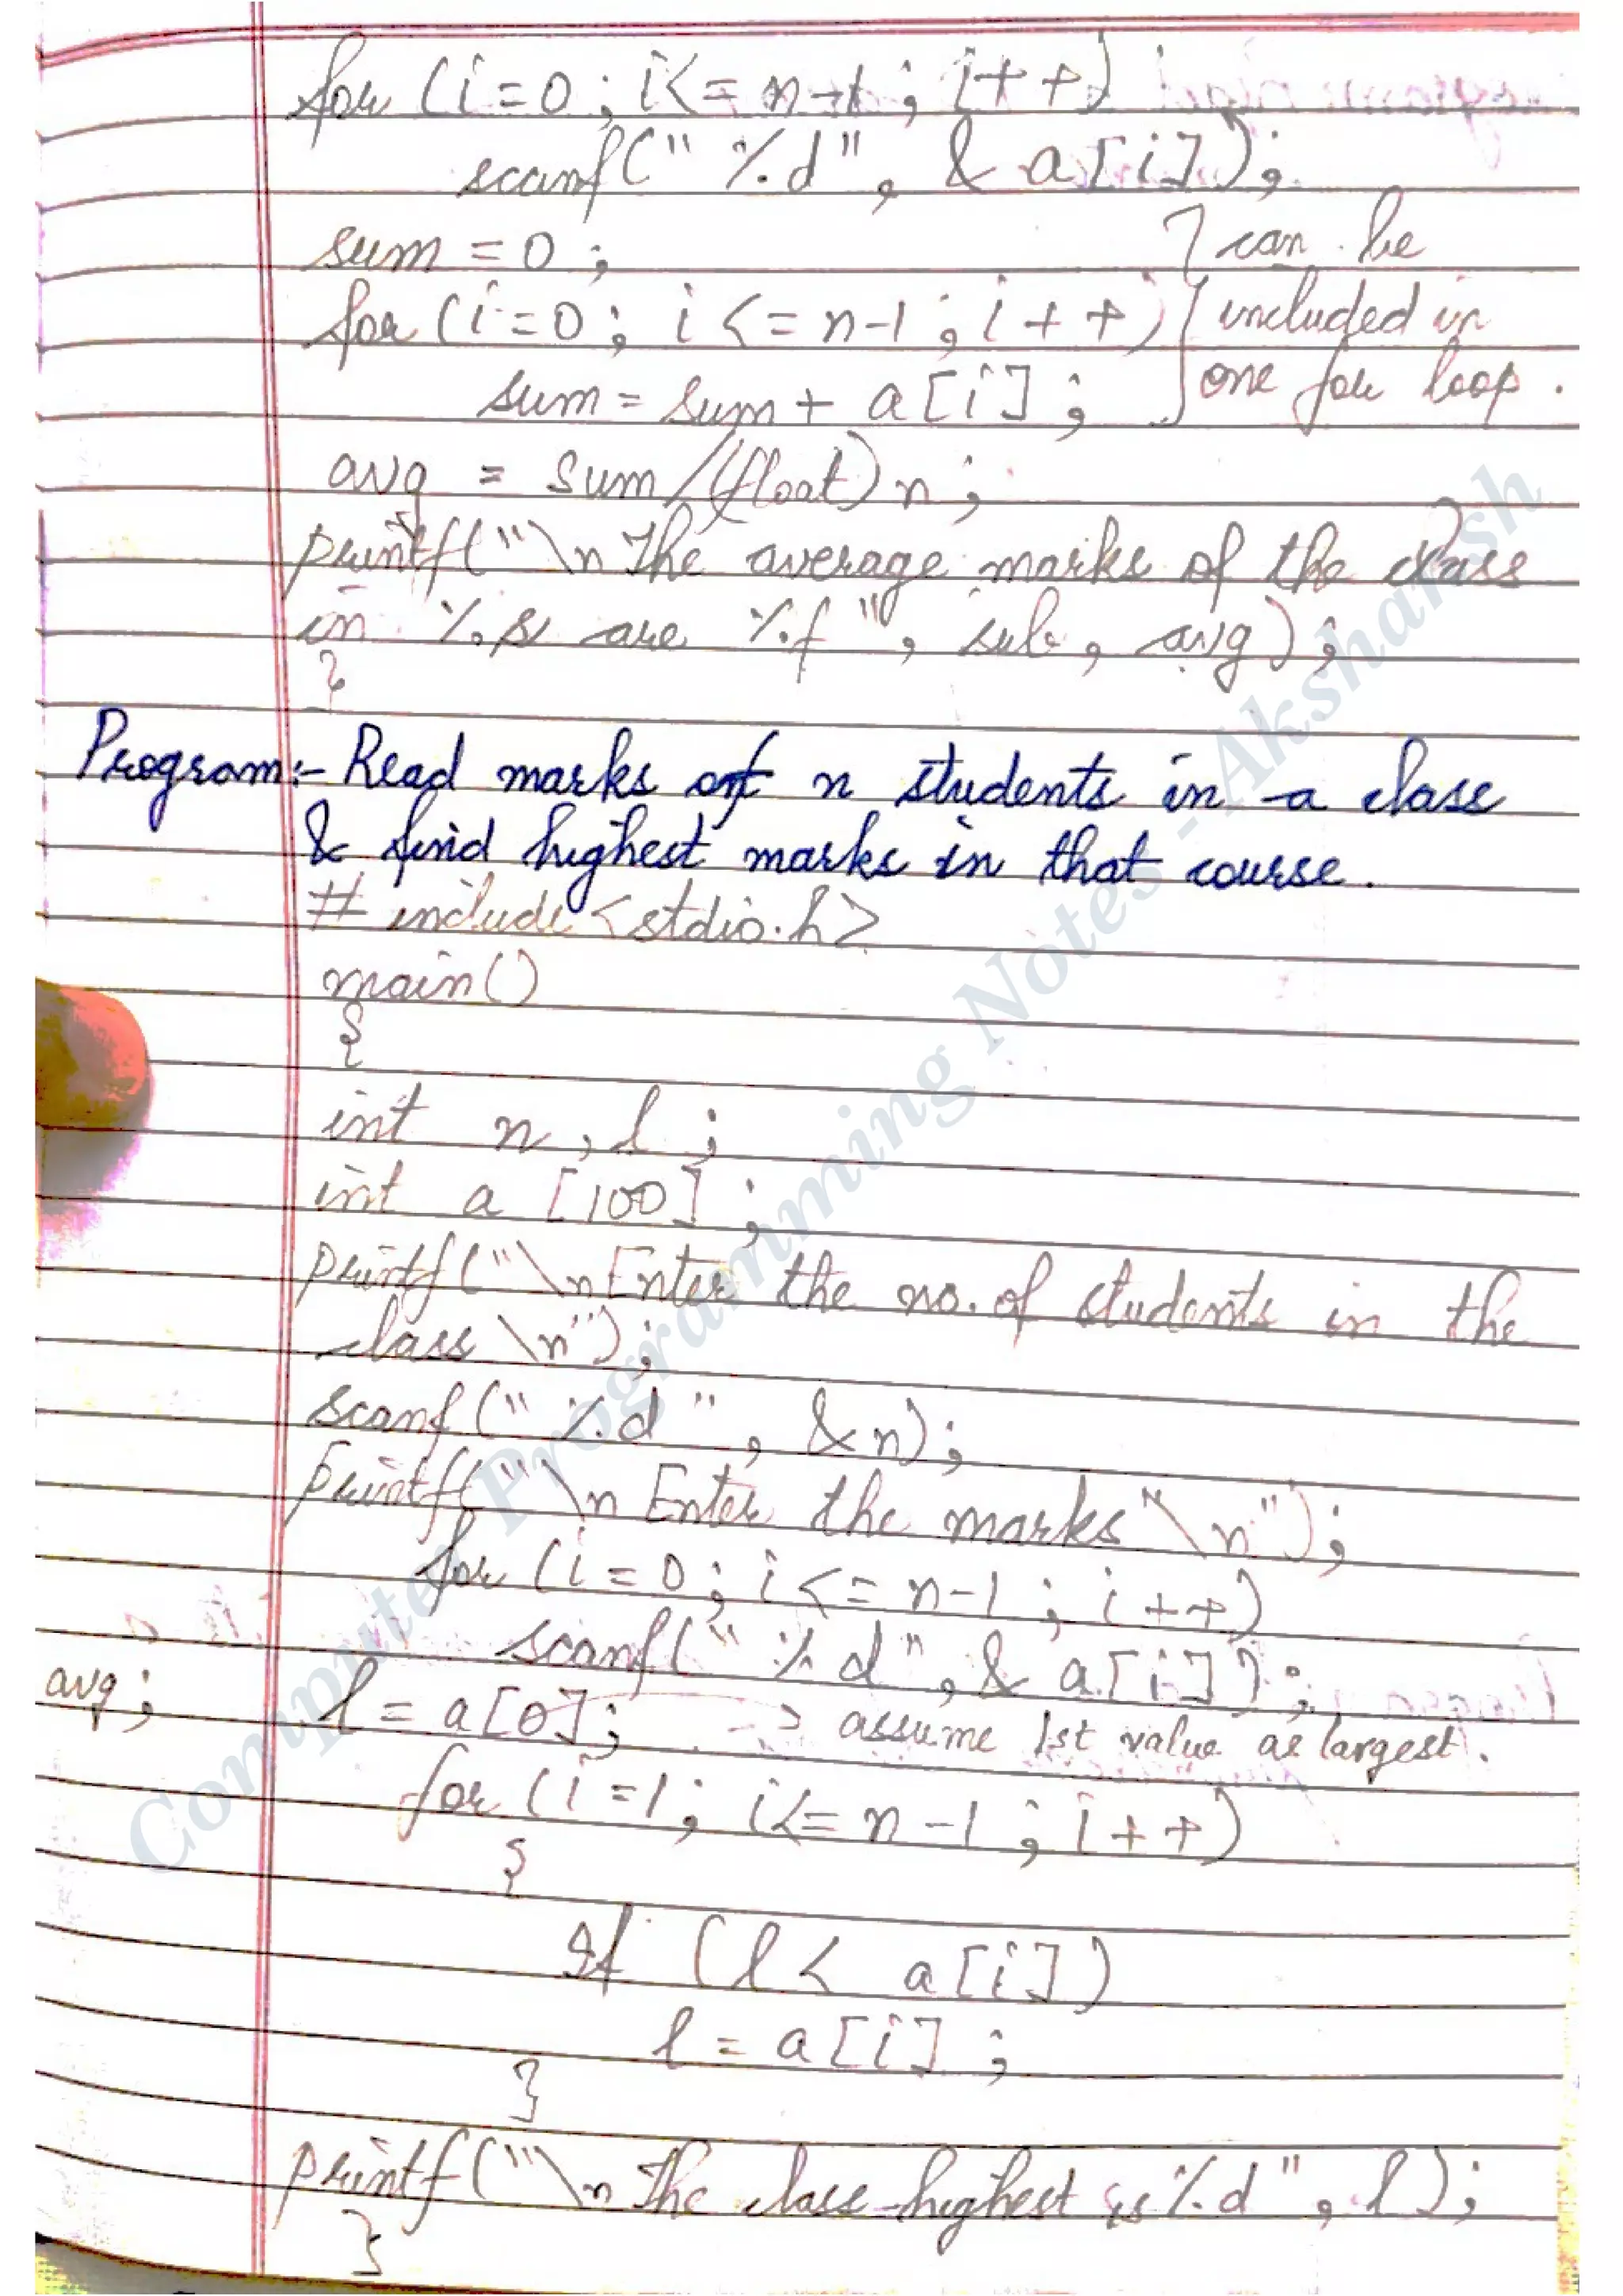 for (i=0; i<=n-1; i++)
scanf("%d", &a[i]);
sum = 0;
for (i=0; i<=n-1; i++)
sum = sum + a[i];
} can be
included in
one for loop.
avg = sum/(float)n;
printf("\n The average marks of the class
in %s are %f", sub, avg);
}
Program:- Read marks of n students in a class
& find highest marks in that course.
# include <stdio.h>
main()
{
int n, l;
int a [100];
printf("\n Enter the no. of students in the
class \n");
scanf("%d", &n);
printf("\n Enter the marks \n");
for (i=0; i<=n-1; i++)
scanf("%d", &a[i]);
avg;
l = a[0]; -> assume 1st value as largest.
for (i=1; i<=n-1; i++)
{
If (l < a[i])
l = a[i];
}
printf("\n The class-highest is %d", l);
}
Computer Programming Notes - Akshansh